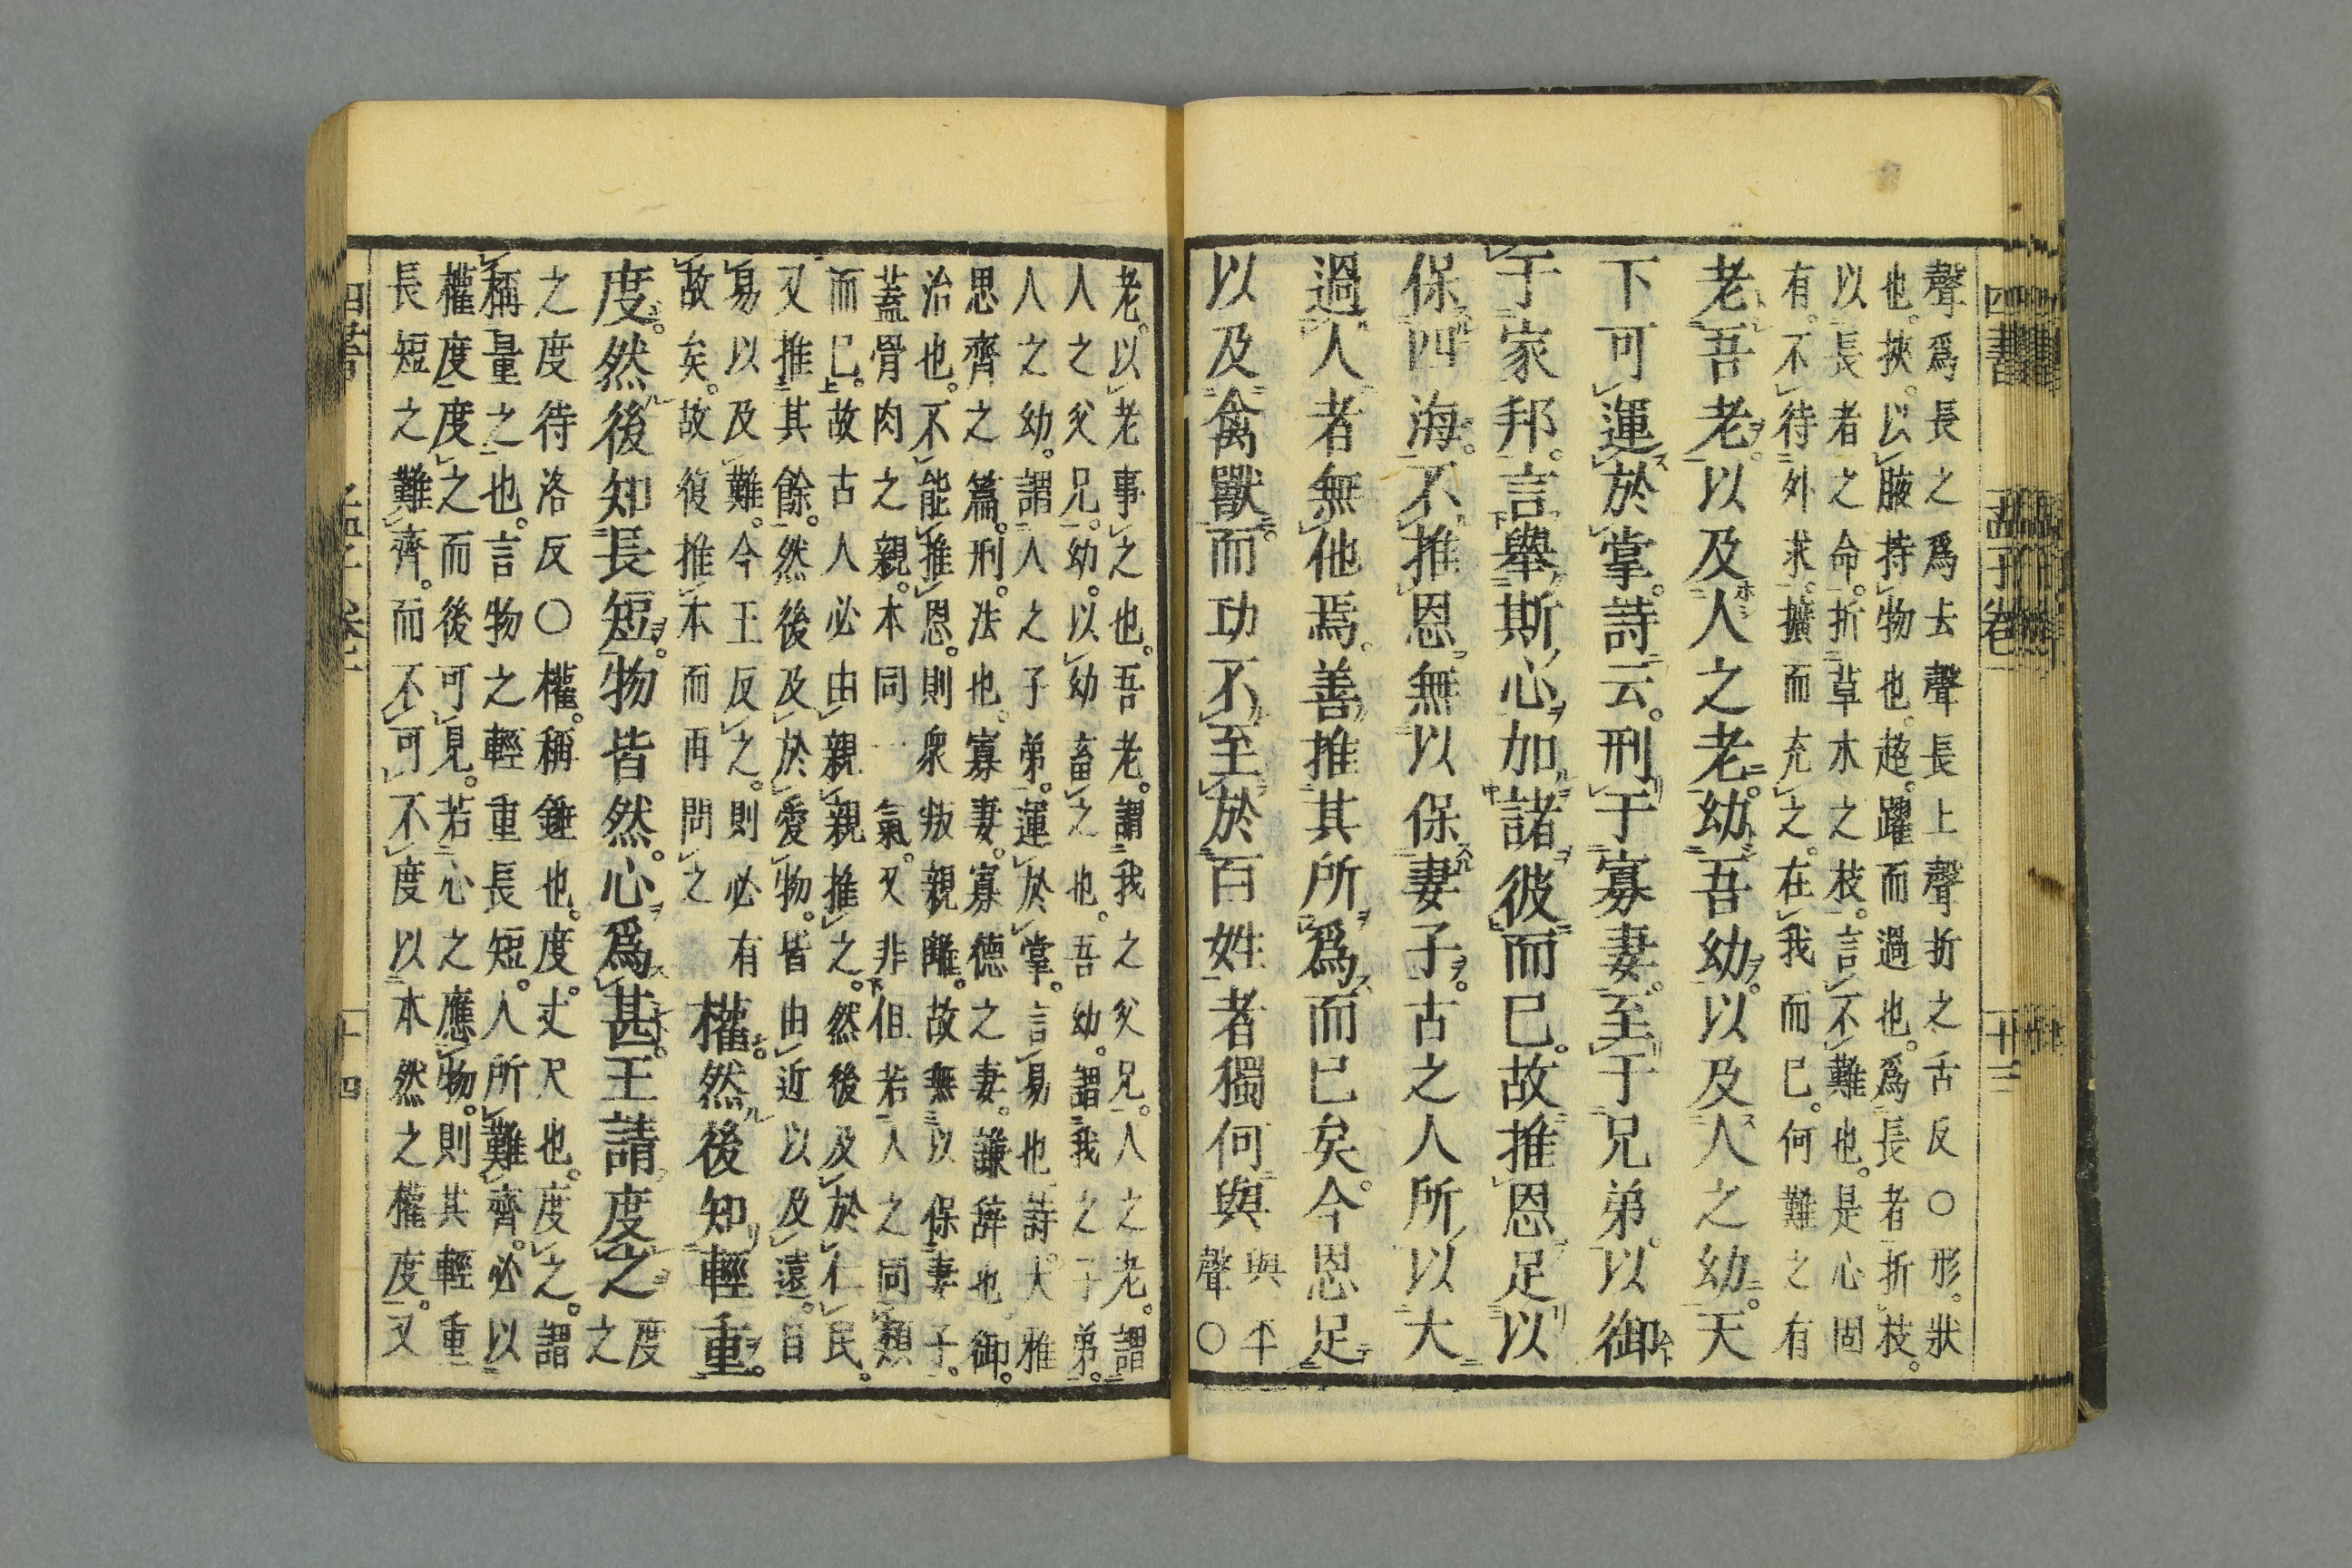 四書 孟子卷一 十三
聲爲長之爲去聲長上聲折之舌反○形。狀
也。挾。以腋持物也。超。躍而過也。爲長者折枝。
以長者之命。折草木之枝。言不難也。是心固
有。不待外求。擴而充之。在我而已。何難之有
老吾老。以及人之老。幼吾幼。以及人之幼。天
下可運於掌。詩云。刑于寡妻。至于兄弟。以御
于家邦。言舉斯心加諸彼而已。故推恩足以
保四海。不推恩無以保妻子。古之人所以大
過人者無他焉。善推其所爲而已矣。今恩足
以及禽獸。而功不至於百姓者獨何與與平
聲○
老。以老事之也。吾老。謂我之父兄。人之老。謂
人之父兄。幼。以幼畜之也。吾幼。謂我之子弟。
人之幼。謂人之子弟。運於掌。言易也。詩。大雅
思齊之篇。刑。法也。寡妻。寡德之妻。謙辭也。御。
治也。不能推恩。則衆叛親離。故無以保妻子。
蓋骨肉之親。本同一氣。又非但若人之同類
而已。故古人必由親親推之。然後及於仁民。
又推其餘。然後及於愛物。皆由近以及遠。自
易以及難。今王反之。則必有
故矣。故復推本而再問之 權。然後知輕重。
度。然後知長短。物皆然。心爲甚。王請度之度之
之度待洛反○權。稱錘也。度。丈尺也。度之。謂
稱量之也。言物之輕重長短。人所難齊。必以
權度度之而後可見。若心之應物。則其輕重
長短之難齊。而不可不度以本然之權度。又
四書 孟子卷一 十四